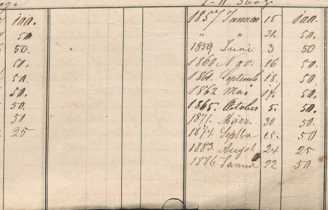 100.
50
50.
50.
50.
50.
50.
50
25
1857 Januar 15 100.
" " 31. 50
1859 Juni 3 50.
1860 Nov. 16 50.
Septemb 18. 50.
1862 Mai 50.
1865. October 5. 50.
1871. März. 30 50.
1874 50.
1883 August 24 25
1886 Januar 22 50